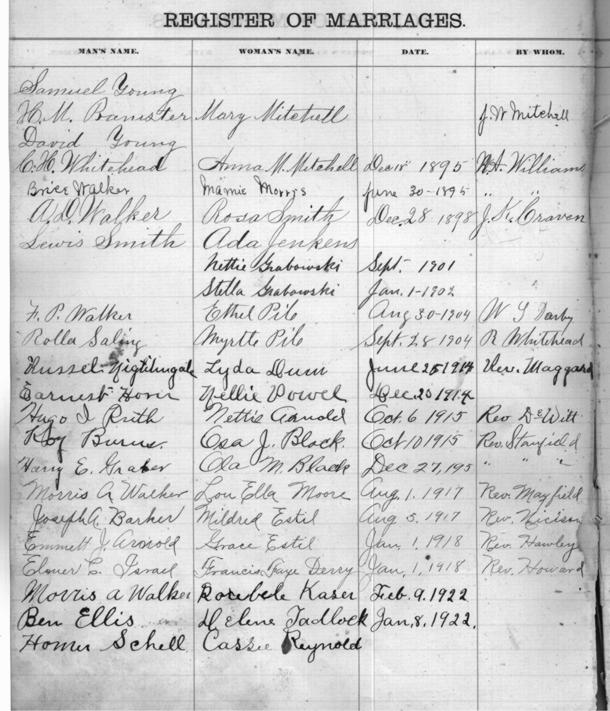 REGISTER OF MARRIAGES.
MAN'S NAME. WOMAN'S NAME. DATE. BY WHOM.
Samuel Young
H. M. Banister Mary Mitchell J. W Mitchell
David Young
C. H. Whitehead Anna M. Mitchell Dec 18 1895 Williams
Brice Walker Mamie Morris June 30-1895 " "
A. D. Walker Rosa Smith Dec. 28 1898 J. K. Craven
Lewis Smith Ada Jenkens
Nettie Grabowski Sept. 1901
Stella Grabowski Jan. 1-1902
F. P. Walker Ethel Pile Aug 30-1904 W G Darby
Rolla Saling Myrtte Pile Sept. 28 1904 R Whitehead
Russel Nigtingale Lyda Dunn June 25 1914 Rev. Maggard
Earnest Nellie Dec. 20 1914
Hugo I Nettie Arnold Oct. 6 1915 Rev. DeWitt
Roy Burns. J. Black Oct 10 1915 Rev. Stanfield
Harry E. Graber Ola M. Black Dec 27, 195 " " "
Morris A Walker Lou Ella Moore Aug. 1. 1917 Rev. Mayfield
Joseph A Barker Mildred Estil Aug 5. 1917 Rev.
Emmett J. Arnold Grace Estil Jan. 1. 1918 Rev. Hawley
Elmer C. Israel Francis Faye Derry Jan. 1. 1918 Rev. Howard
Morris a Walker Rosebele Kaser Feb. 9. 1922
Ben Ellis Helene Tadlock Jan. 8. 1922.
Homer Schell Cassie Reynold